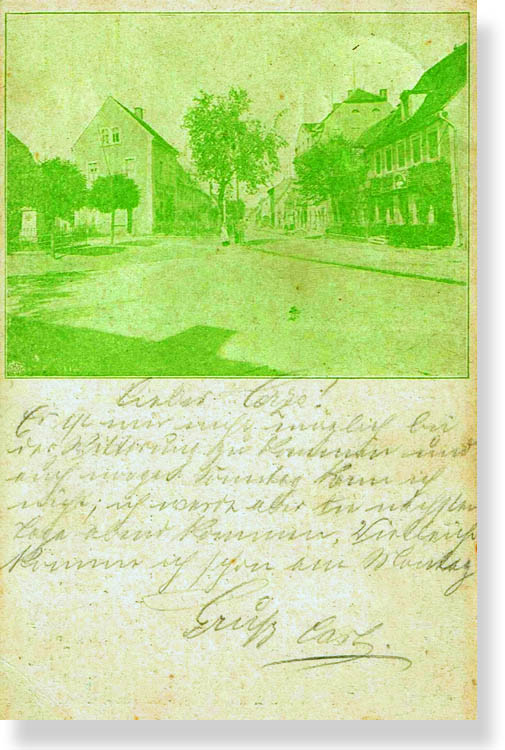 Lieber
Es ist mir nicht möglich bei
der Witterung zu kommen und
auch morgen Sonntag kann ich
nicht; ich werde aber die nächsten
Tage abend kommen. Vielleicht
komme ich schon am Montag
Gruß Carl.